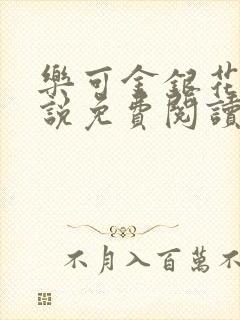 樂可金銀花
說免費閱讀
不月入百萬不